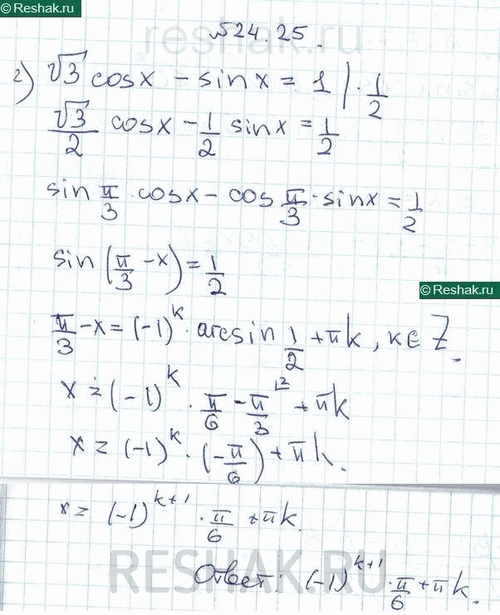 Reshak.ru
reshak.ru
№24.25.
г) √3 cosx - sinx = 1 | · 1/2
√3/2 cosx - 1/2 sinx = 1/2
sin π/3 · cosx - cos π/3 · sinx = 1/2
sin(π/3 - x) = 1/2
Reshak.ru
π/3 - x = (-1)^k · arcsin 1/2 + πk, k∈Z.
x = (-1)^k · π/6 - π/3 + πk
x = (-1)^k · (-π/6) + πk.
x = (-1)^(k+1) · π/6 + πk.
RESHAK.RU
Ответ: (-1)^(k+1) · π/6 + πk.